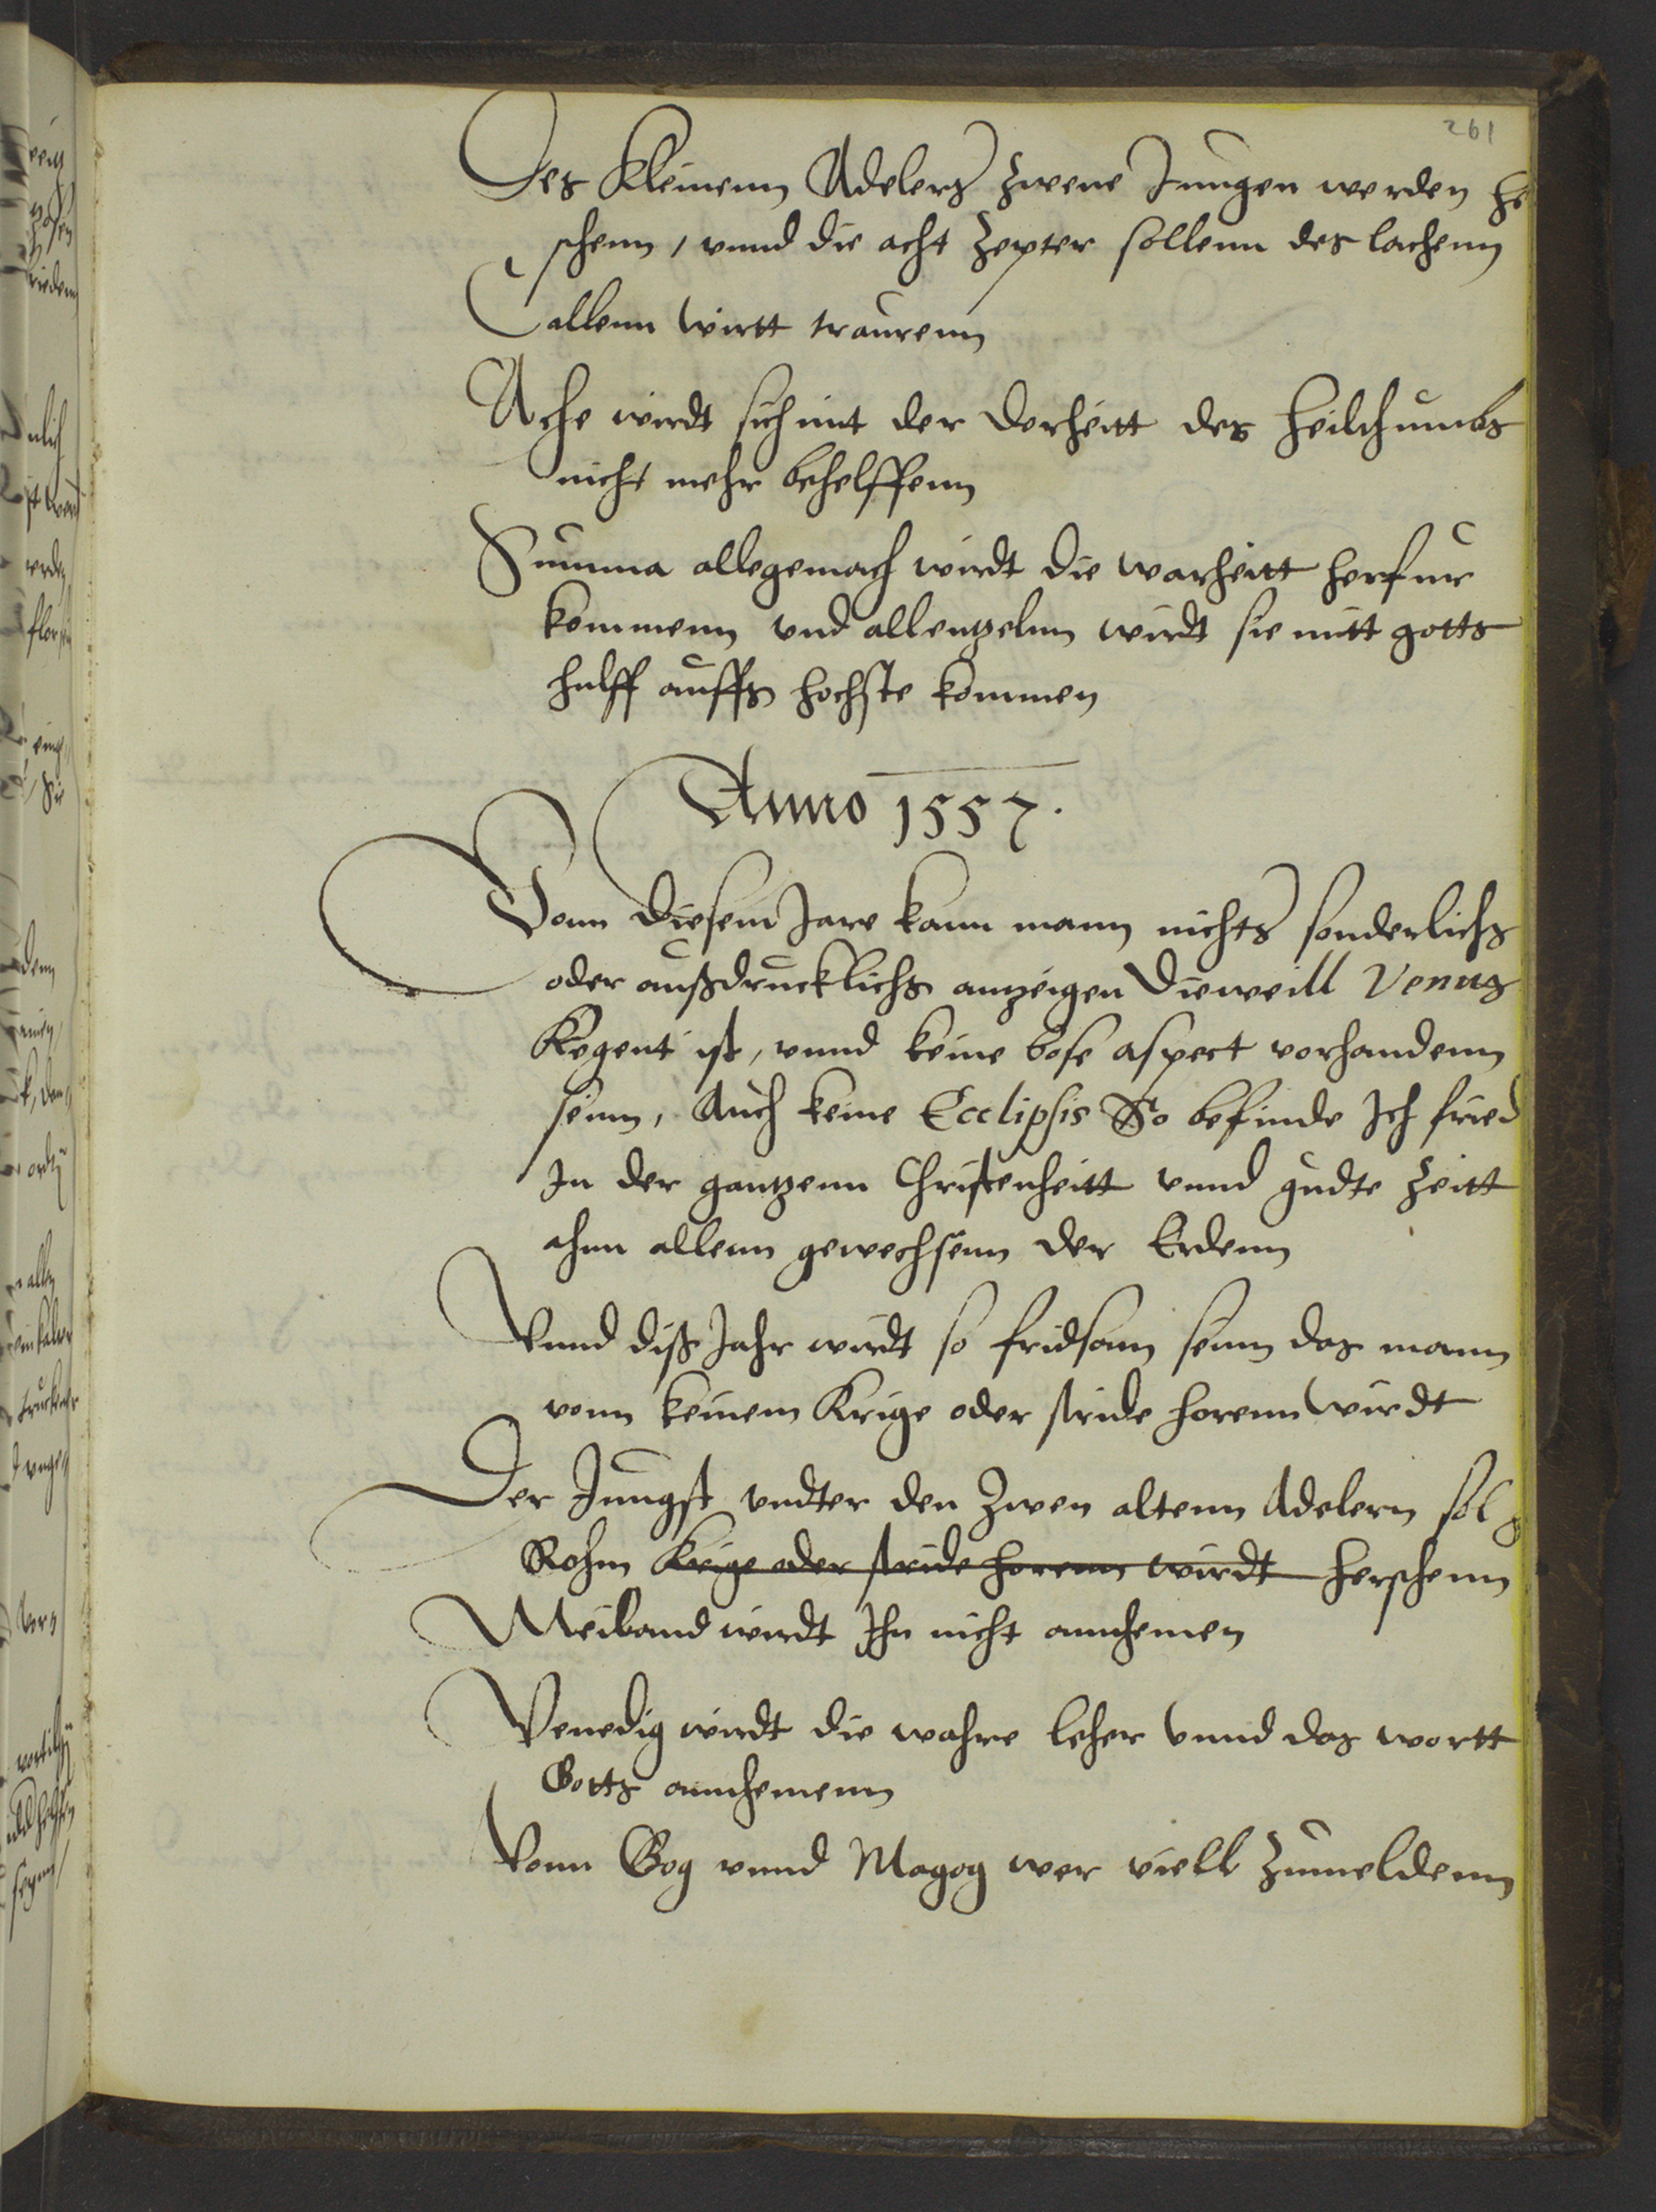 261
Des Kleinenn Adelers zwene Jungen werden he
schenn, vnnd die acht Zepter sollenn des lachenn
Callenn wirtt traurenn
Ache wirdt sich mit der dorheitt des heilchumbs
nicht mehr behelffenn
Summa allegemach wirdt die warheitt herfur
kommenn vnd allentzelnn wirdt sie mitt gotts
hulff auffs hochste kommen
Anno 1557.
Vonn diesem Jare kann mann nichts sonderlichs
oder außdrucklichs anzeigen Dieweill Venus
Regent ist, vnnd keine bose aspect vorhandenn
seinn, Auch keine Ecclipsis So befinde Ich fried
In der gantzenn Christenheitt vnnd gudte Zeitt
ahnn allenn gewechsenn der Erdenn
Vnnd diß Jahr wirdt so fridsam seinn das mann
vonn keinem Krige oder stride horenn wirdt
Der Jungst vndter den zwen altenn Adelern sol
Rohm Krige oder stride horenn wirdt herschenn
Meiland wirdt Ihn nicht annhemen
Venedig wirdt die wahre leher vnnd das wortt
Gotts annhemenn
Vonn Gog vnnd Magog wer viell zumeldenn